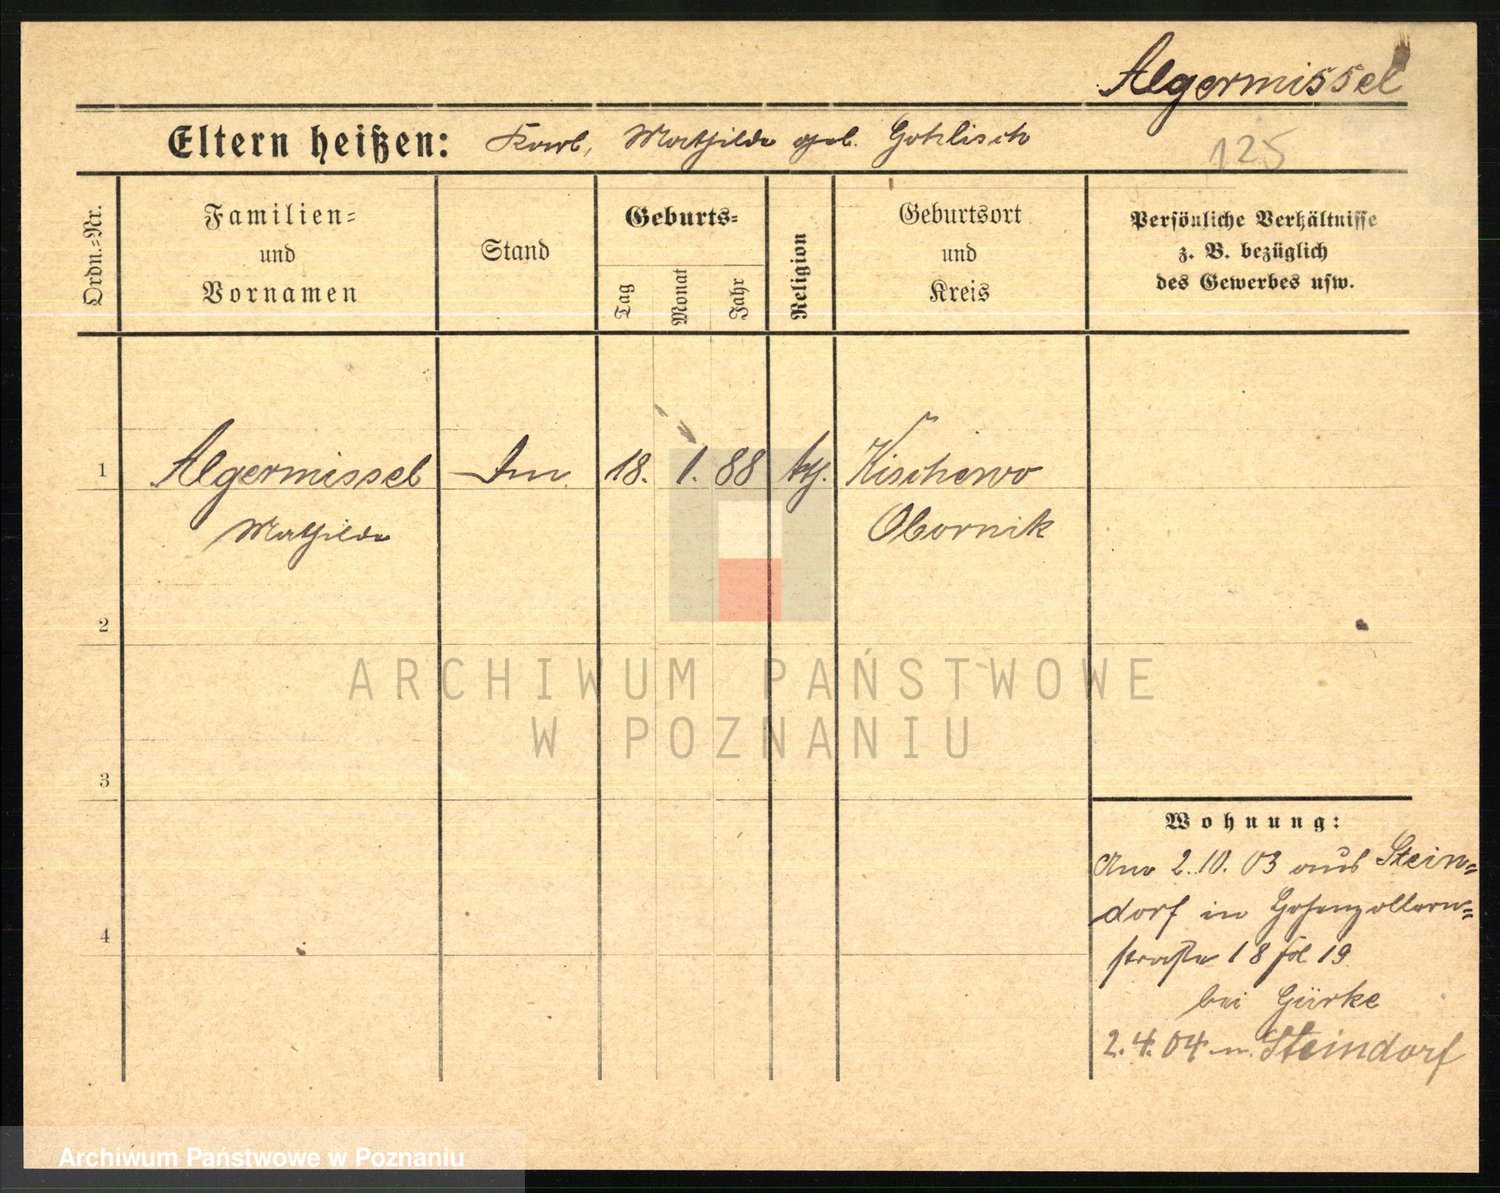 Algermissel
Eltern heißen: Karl, Mathilde geb. Gohlisch
125
Ordn.=Nr.
Familien=
und
Vornamen
Stand
Geburts=
Tag
Monat
Jahr
Religion
Geburtsort
und
Kreis
Persönliche Verhältnisse
z. B. bezüglich
des Gewerbes usw.
1 Algermissel 18. 1. 88 Kischewo
Mathilde Obornik
2
3
4
ARCHIWUM PAŃSTWOWE
W POZNANIU
Wohnung:
2.10.03 aus Stein=
dorf in Hohenzollern=
straße 18 19
bei Gürke
2.4.04 n. Steindorf
Archiwum Państwowe w Poznaniu